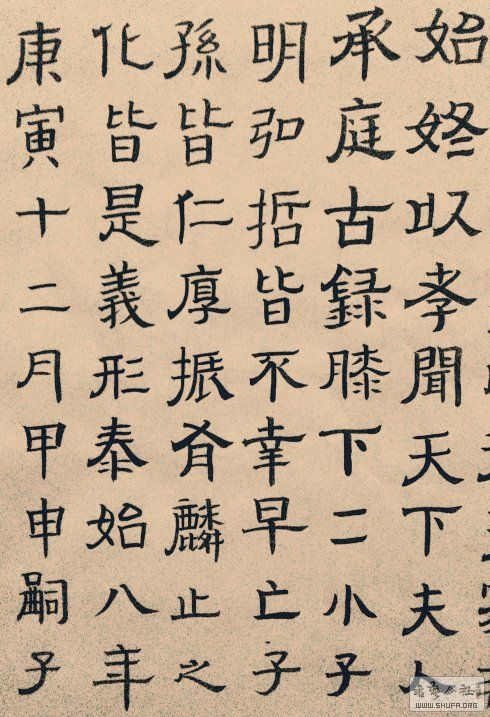 始終以孝聞天下夫人
承庭古錄膝下二小子
明弘哲皆不幸早亡子
孫皆仁厚振麟止之
化皆是義形泰始八年
庚寅十二月甲申嗣子
WWW.SHUFA.ORG